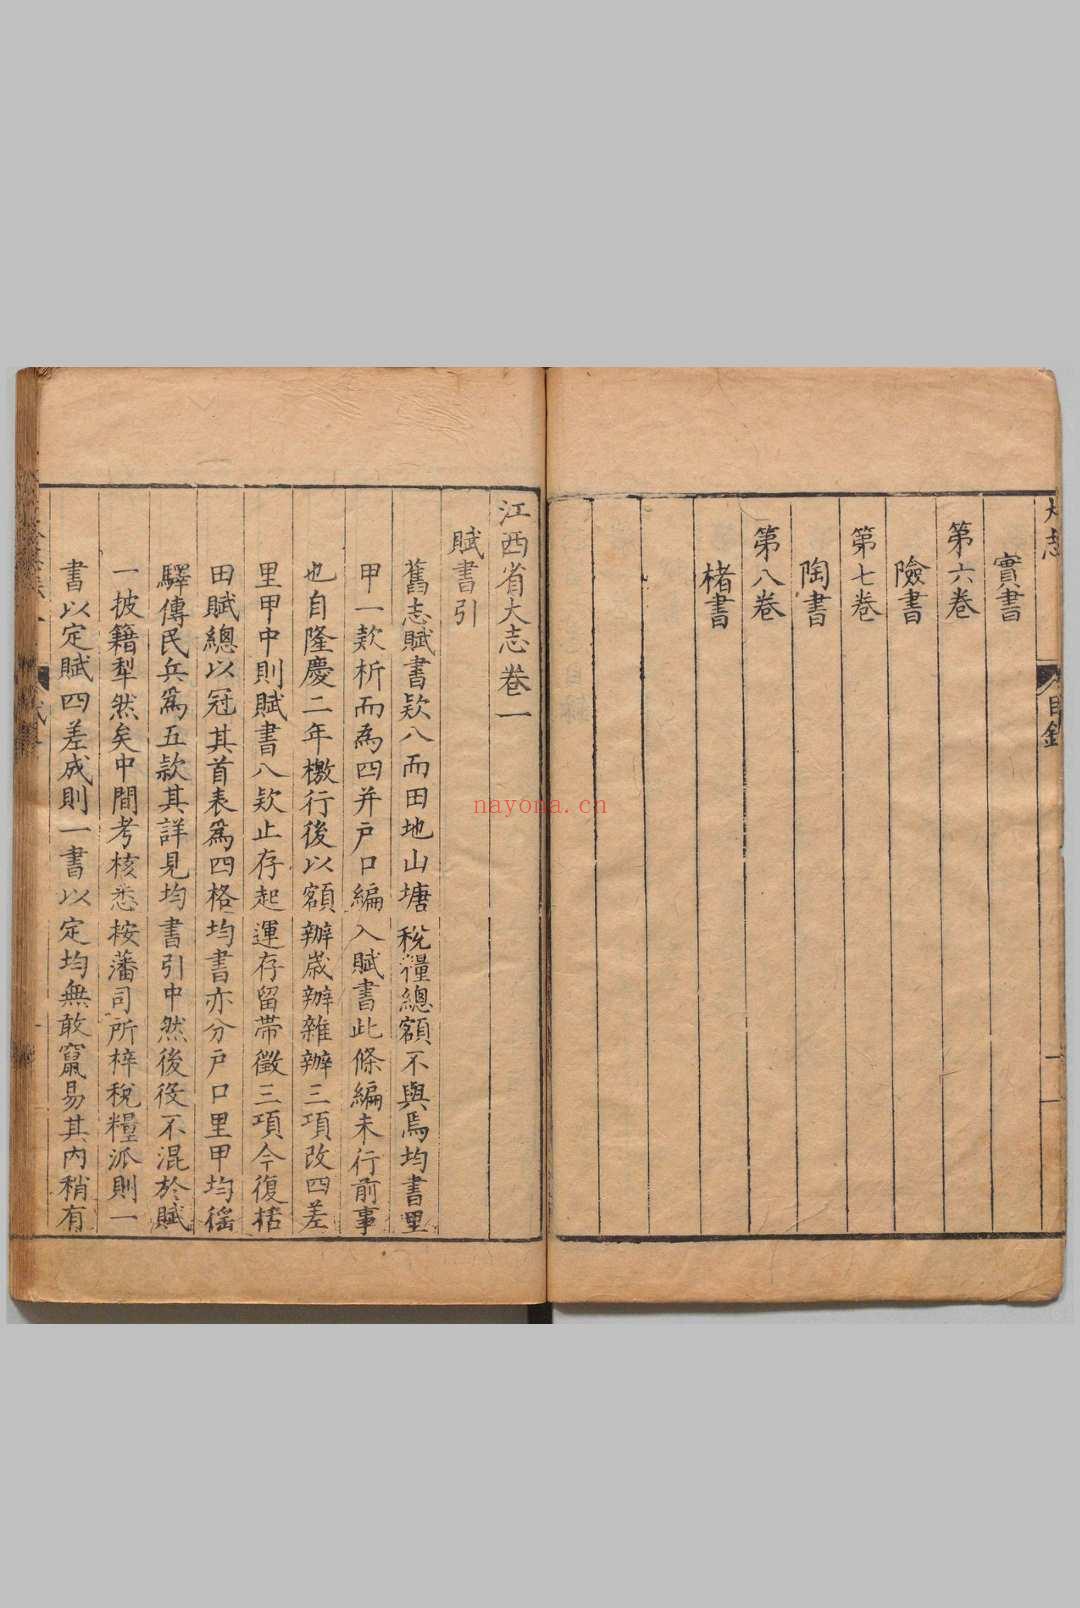 大志
目錄
一
實書
第六卷
險書
第七卷
陶書
第八卷
楮書
江西省大志卷一
賦書引
舊志賦書欵八而田地山塘稅糧總額不與焉均書里
甲一款析而為四并戶口編入賦書此條編未行前事
也自隆慶二年檄行後以額辦歲辦雜辦三項改四差
里甲中則賦書八欵止存起運存留帶徵三項今復括
田賦總以冠其首表爲四格均書亦分戶口里甲均徭
驛傳民兵爲五款其詳見均書引中然後役不混於賦
一披籍犁然矣中間考核悉桉藩司所梓稅糧派則一
書以定賦四差成則一書以定均無敢竄易其內稍有
nayona.cn